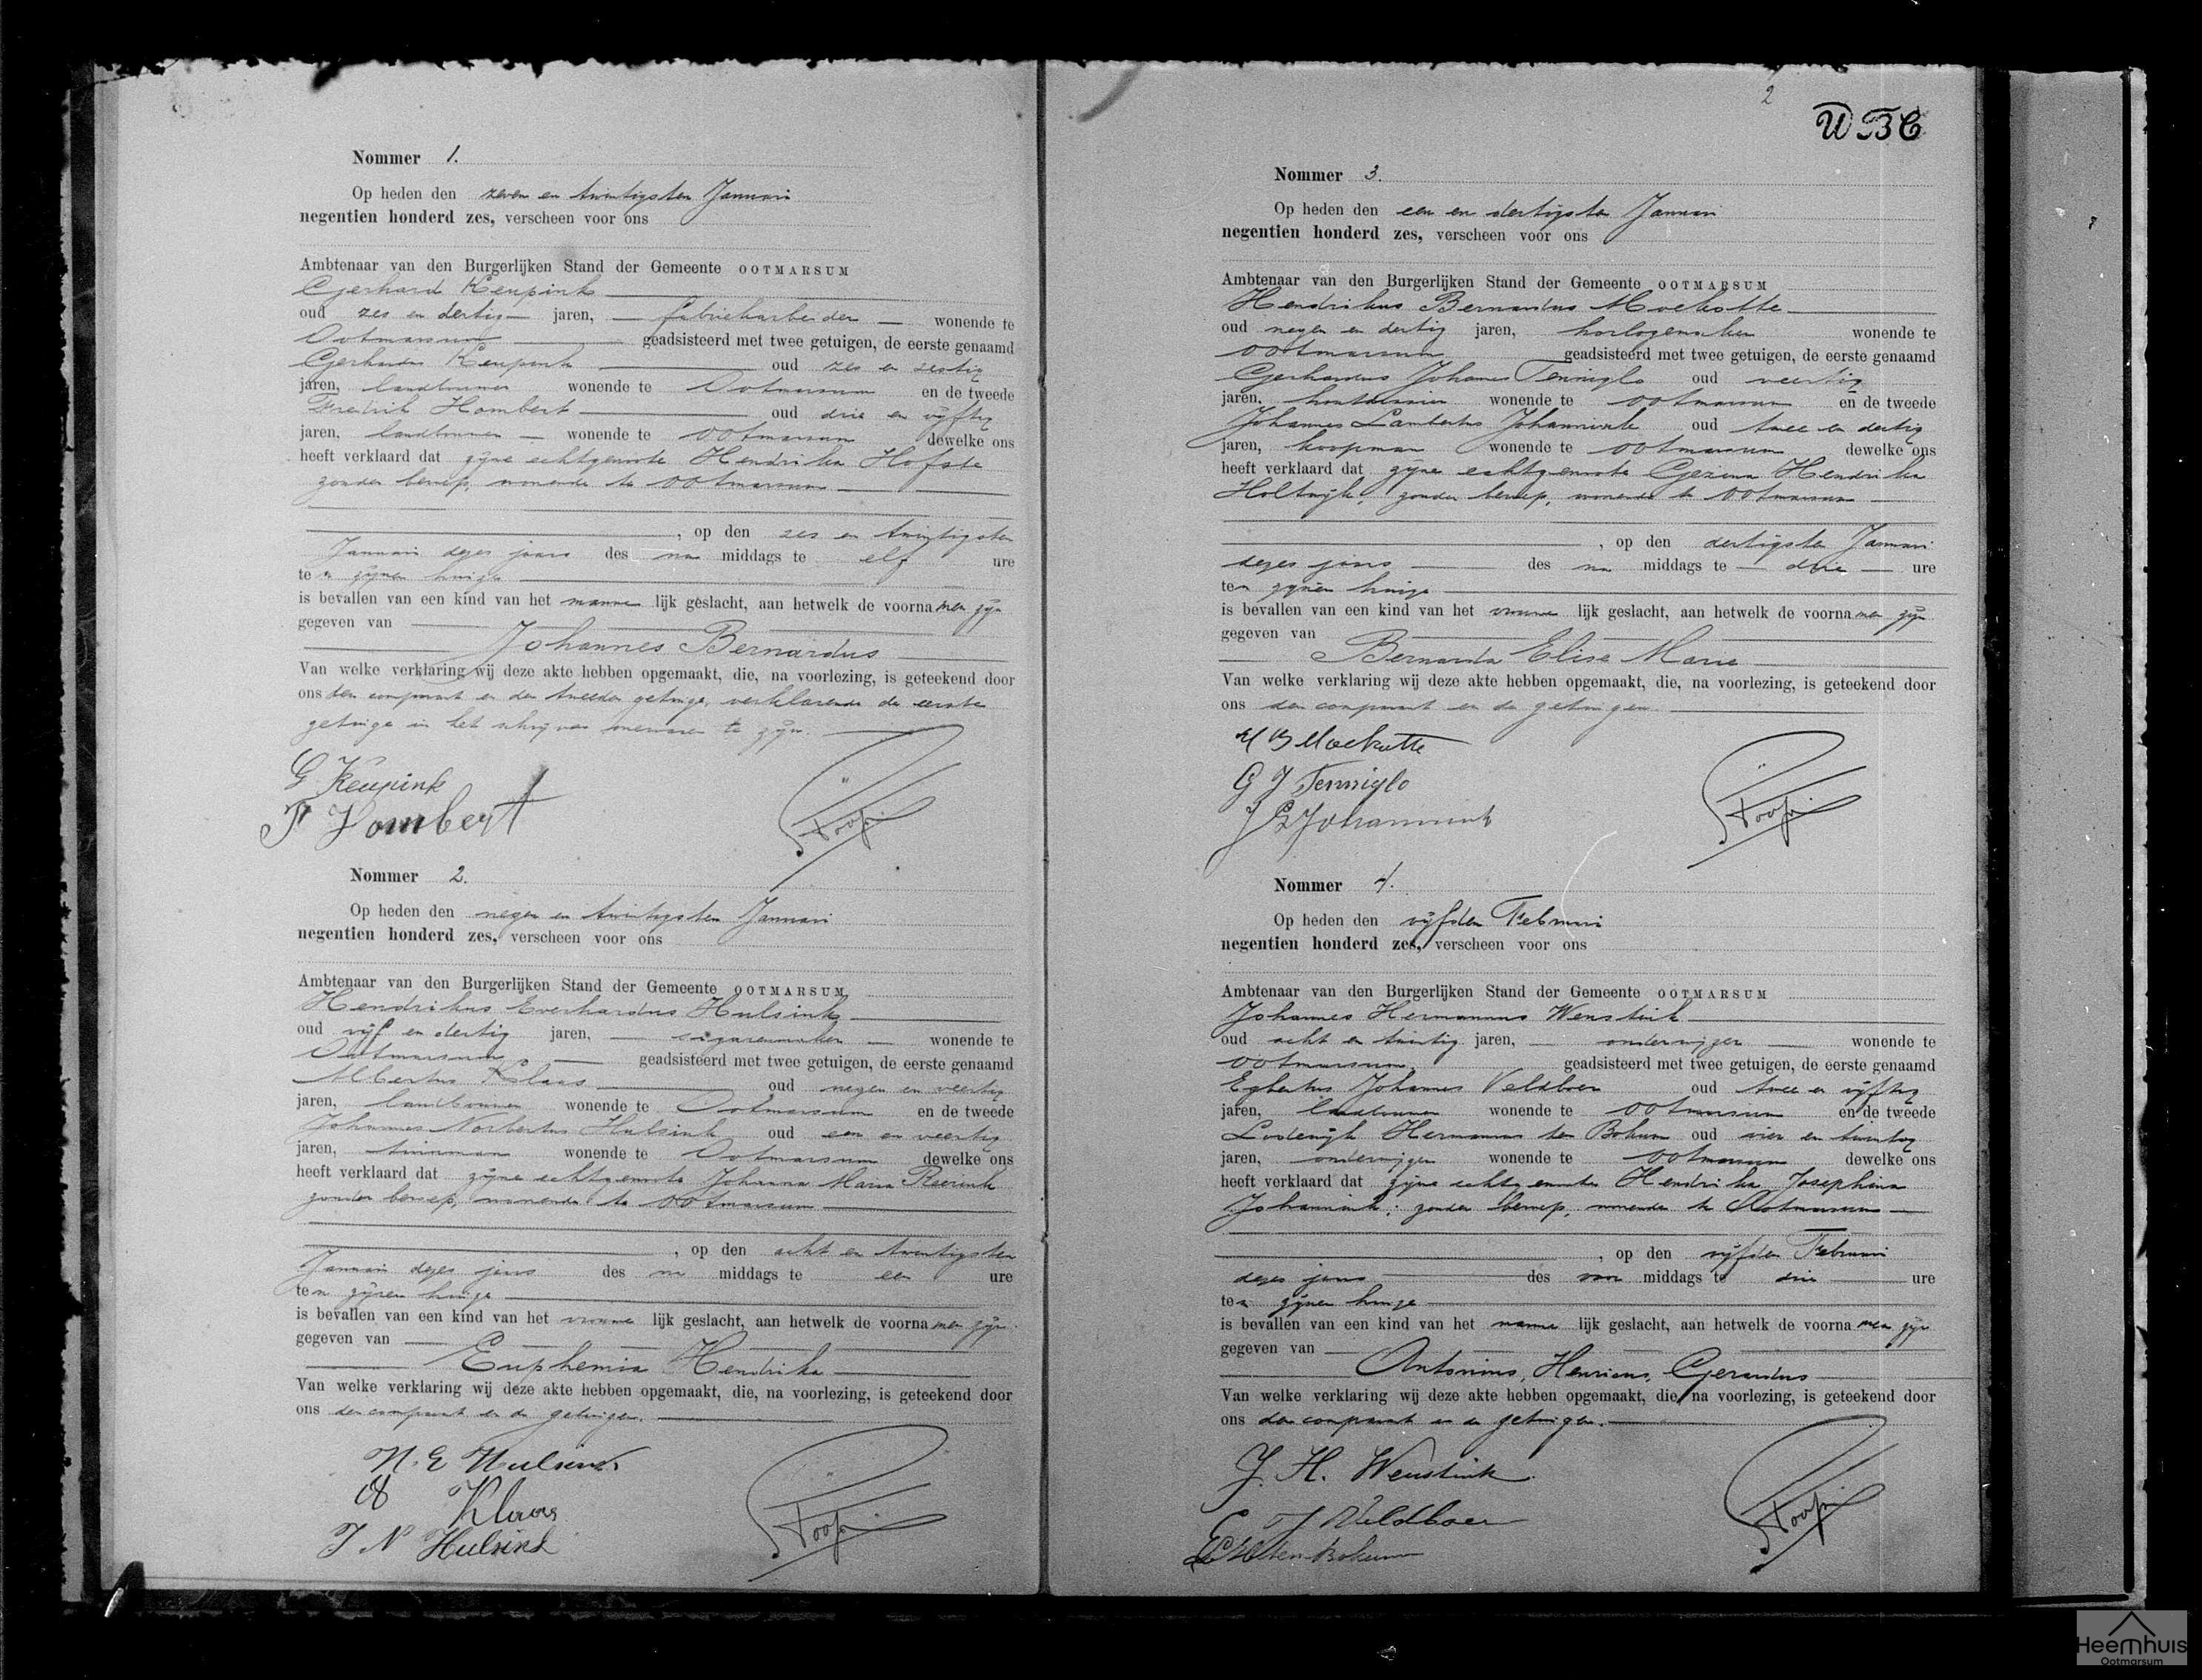 Nommer 1.
Op heden den zeven en twintigsten Januari
negentien honderd zes, verscheen voor ons
Ambtenaar van den Burgerlijken Stand der Gemeente OOTMARSUM
Gerhard Keupink
oud zes en dertig jaren, fabriekarbeider wonende te
Ootmarsum geadsisteerd met twee getuigen, de eerste genaamd
Gerhardus Keupink oud zes en zestig
jaren, landbouwer wonende te Ootmarsum en de tweede
Fredrik Hombert oud drie en vijftig
jaren, landbouwer wonende te Ootmarsum dewelke ons
heeft verklaard dat zijne echtgenoote Hendrika Hofste
zonder beroep, wonende te Ootmarsum
, op den zes en twintigsten
Januari dezes jaars des na middags te elf ure
ten zijnen huize
is bevallen van een kind van het manne lijk geslacht, aan hetwelk de voorna men zijn
gegeven van
Johannes Bernardus
Van welke verklaring wij deze akte hebben opgemaakt, die, na voorlezing, is geteekend door
ons den comparant en den tweeden getuige, verklarende de eerste
getuige in het schrijven onervaren te zijn.
G Keupink
F Hombert
Nommer 2.
Op heden den negen en twintigsten Januari
negentien honderd zes, verscheen voor ons
Ambtenaar van den Burgerlijken Stand der Gemeente OOTMARSUM
Hendrikus Everhardus Hulsink
oud vijf en dertig jaren, sigarenmaker wonende te
Ootmarsum, geadsisteerd met twee getuigen, de eerste genaamd
Albertus Klaas oud negen en veertig
jaren, landbouwer wonende te Ootmarsum en de tweede
Johannes Norbertus Hulsink oud een en veertig
jaren, tuinman wonende te Ootmarsum dewelke ons
heeft verklaard dat zijne echtgenoote Johanna Maria Reerink
zonder beroep, wonende te Ootmarsum
, op den acht en twintigsten
Januari dezes jaars des na middags te een ure
ten zijnen huize
is bevallen van een kind van het vrouwe lijk geslacht, aan hetwelk de voorna men zijn
gegeven van
Euphemia Hendrika
Van welke verklaring wij deze akte hebben opgemaakt, die, na voorlezing, is geteekend door
ons den comparant en de getuigen.
H. E Hulsink
A Klaas
J N Hulsink
2
WBC
Nommer 3.
Op heden den een en dertigsten Januari
negentien honderd zes, verscheen voor ons
Ambtenaar van den Burgerlijken Stand der Gemeente OOTMARSUM
Hendrikus Bernardus Moekotte
oud negen en dertig jaren, horlogemaker wonende te
Ootmarsum geadsisteerd met twee getuigen, de eerste genaamd
Gerhardus Johannes Tenniglo oud veertig
jaren, wonende te Ootmarsum en de tweede
Johannes Lambertus Johannink oud twee en dertig
jaren, koopman wonende te Ootmarsum dewelke ons
heeft verklaard dat zijne echtgenoote Gezina Hendrika
Holtwijk, zonder beroep, wonende te Ootmarsum
, op den dertigsten Januari
dezes jaars des na middags te drie ure
ten zijnen huize
is bevallen van een kind van het vrouwe lijk geslacht, aan hetwelk de voorna men zijn
gegeven van
Bernarda Elisa Maria
Van welke verklaring wij deze akte hebben opgemaakt, die, na voorlezing, is geteekend door
ons den comparant en de getuigen.
H B Moekotte
G J Tenniglo
J L Johannink
Nommer 4.
Op heden den vijfden Februari
negentien honderd zes, verscheen voor ons
Ambtenaar van den Burgerlijken Stand der Gemeente OOTMARSUM
Johannes Hermannus Wenstink
oud acht en twintig jaren, onderwijzer wonende te
Ootmarsum, geadsisteerd met twee getuigen, de eerste genaamd
Egbertus Johannes Veldboer oud twee en vijftig
jaren, landbouwer wonende te Ootmarsum en de tweede
Lodewijk Hermannus ten Bokum oud vier en twintig
jaren, onderwijzer wonende te Ootmarsum dewelke ons
heeft verklaard dat zijne echtgenoote Hendrika Josephina
Johannink, zonder beroep, wonende te Ootmarsum
, op den vijfden Februari
dezes jaars des voor middags te drie ure
ten zijnen huize
is bevallen van een kind van het manne lijk geslacht, aan hetwelk de voorna men zijn
gegeven van
Antonius, Henricus, Gerardus
Van welke verklaring wij deze akte hebben opgemaakt, die, na voorlezing, is geteekend door
ons den comparant en de getuigen.
J. H. Wenstink
E J Veldboer
L H ten Bokum
Heemhuis
Ootmarsum